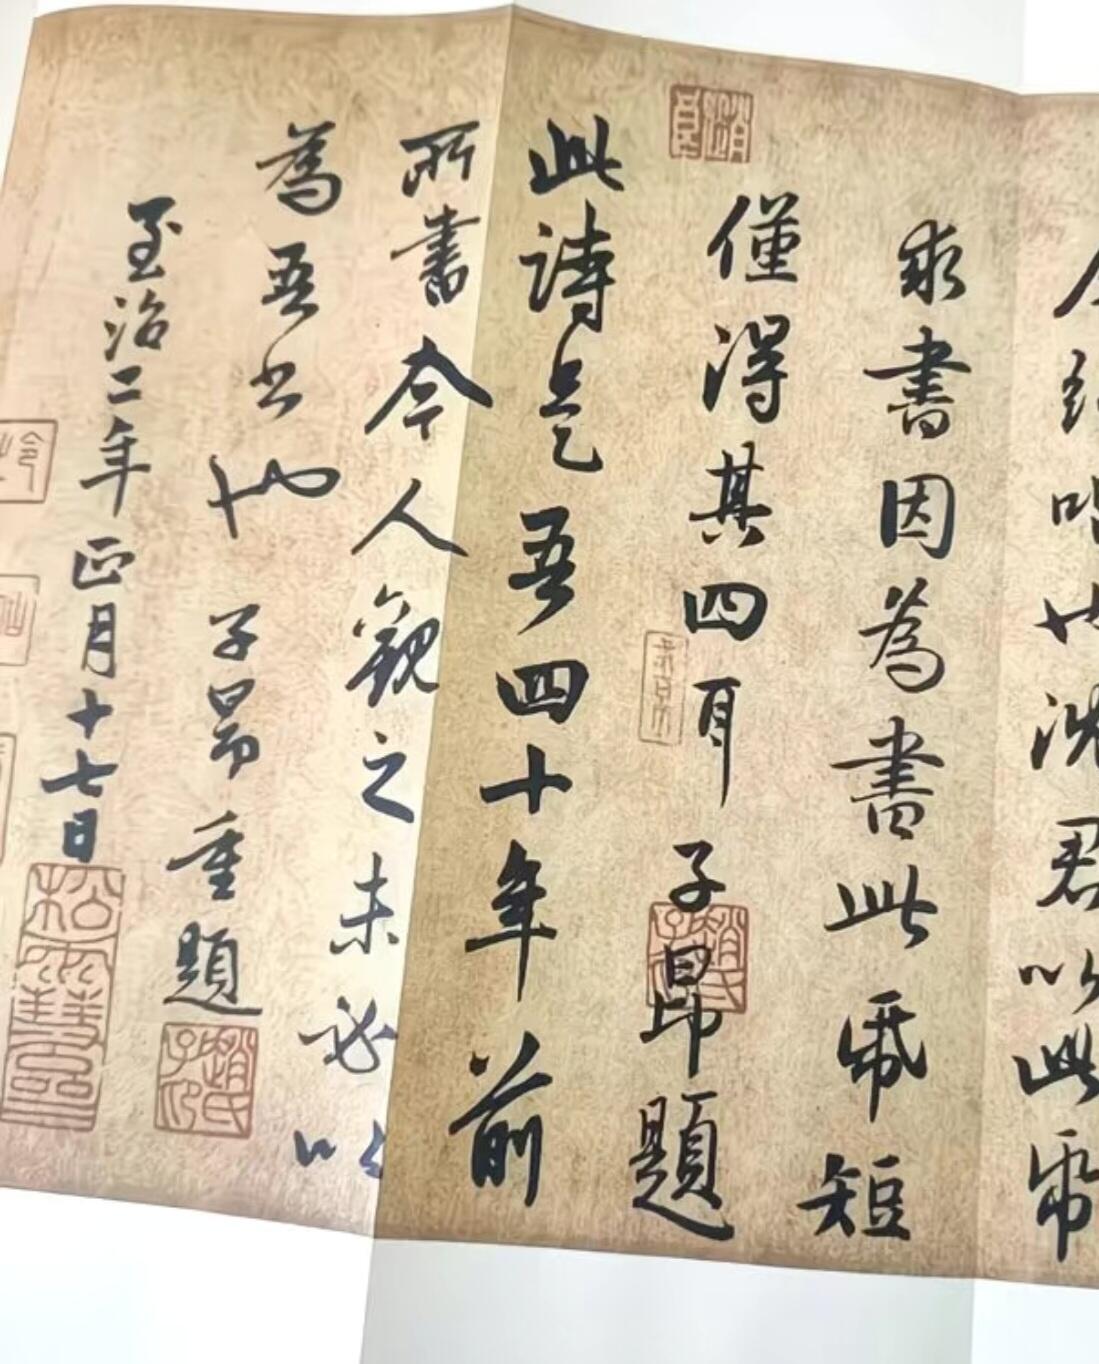 也沈君以此帋
求書因為書此帋短
僅得其四耳 子昂題
此詩是吾四十年前
所書今人觀之未必以
為吾書也 子昂重題
至治二年正月十七日
趙氏子昂
趙氏子昂